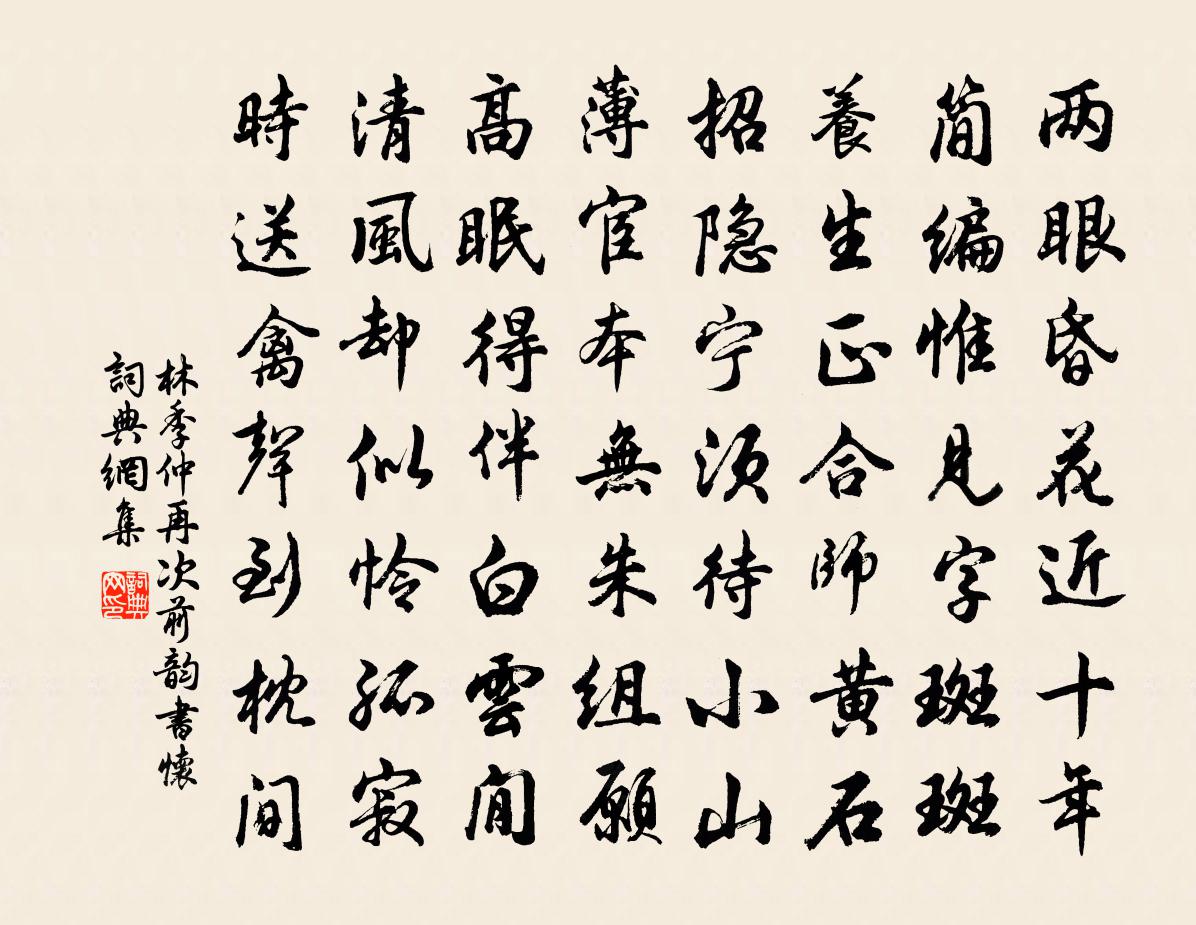 两眼昏花近十年
简编惟见字斑斑
養生正合師黄石
招隐宁须待小山
薄宦本無朱组願
高眠得伴白雲閒
清風却似怜孤寂
時送禽聲到枕間
林季仲再次前韵書懷
詞典網集
詞典网印